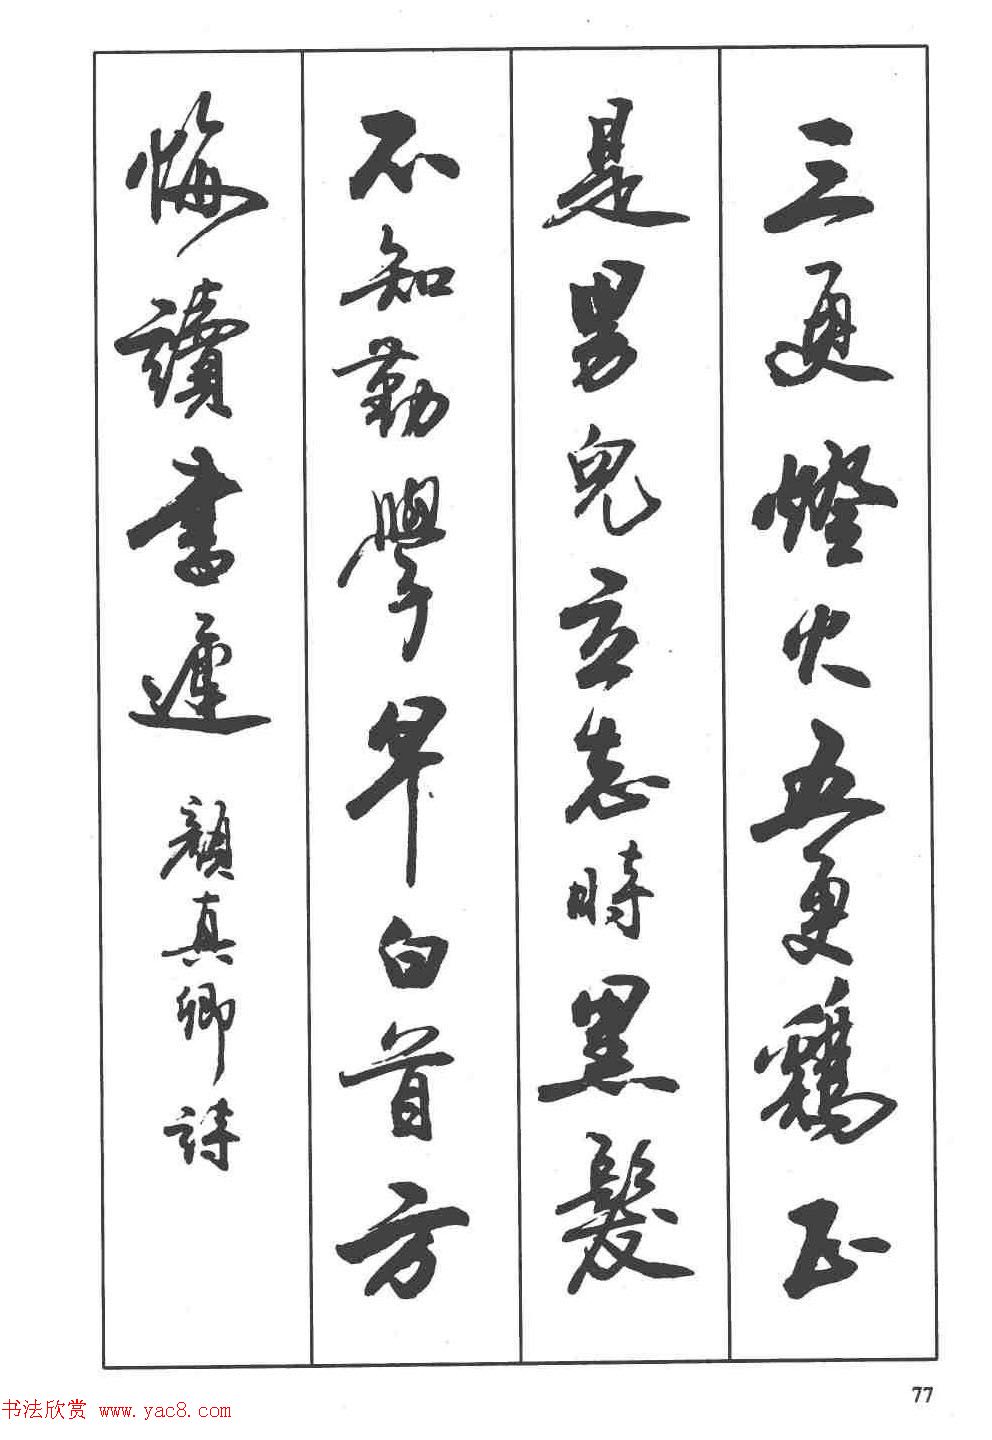 三更燈火五更鷄正
是男兒立志時黑髮
不知勤學早白首方
悔讀書遲 顔真卿詩
77
书法欣赏 www.yac8.com